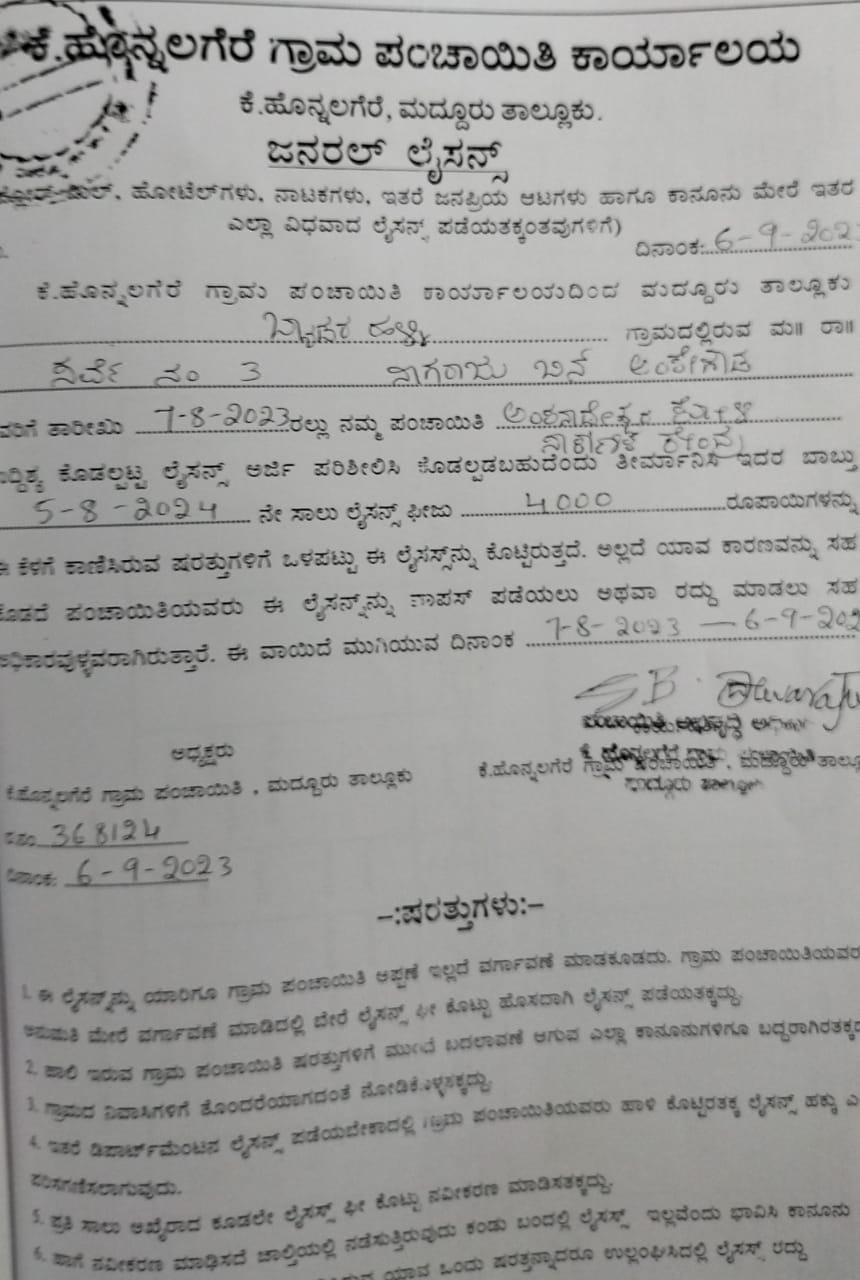 ಕೆ.ಹೊನ್ನಲಗೆರೆ ಗ್ರಾಮ ಪಂಚಾಯಿತಿ ಕಾರ್ಯಾಲಯ
ಕೆ.ಹೊನ್ನಲಗೆರೆ, ಮದ್ದೂರು ತಾಲ್ಲೂಕು.
ಜನರಲ್ ಲೈಸನ್ಸ್
ಹೋಟೆಲ್‌ಗಳು, ನಾಟಕಗಳು, ಇತರೆ ಜನಪ್ರಿಯ ಆಟಗಳು ಹಾಗೂ ಕಾನೂನು ಮೇರೆ ಇತರ
ಎಲ್ಲಾ ವಿಧವಾದ ಲೈಸನ್ಸ್ ಪಡೆಯತಕ್ಕಂತವುಗಳಿಗೆ)
ದಿನಾಂಕ: 6-9-202
ಕೆ.ಹೊನ್ನಲಗೆರೆ ಗ್ರಾಮ ಪಂಚಾಯಿತಿ ಕಾರ್ಯಾಲಯದಿಂದ ಮದ್ದೂರು ತಾಲ್ಲೂಕು
ಬ್ಯಾಡರ ಹಳ್ಳಿ ಗ್ರಾಮದಲ್ಲಿರುವ ಮ॥ ರಾ॥
ಸರ್ವೆ ನಂ 3 ನಾಗರಾಜು ಬಿನ್ ಅಂದೇಗೌಡ
ವರಿಗೆ ತಾರೀಖು 7-8-2023 ರಲ್ಲು ನಮ್ಮ ಪಂಚಾಯಿತಿ
ಕೊಡಲ್ಪಟ್ಟ ಲೈಸನ್ಸ್ ಅರ್ಜಿ ಪರಿಶೀಲಿಸಿ ಕೊಡಲ್ಪಡಬಹುದೆಂದು ತೀರ್ಮಾನಿಸಿ ಇದರ ಬಾಬ್ತು
5-8-2024 ನೇ ಸಾಲು ಲೈಸನ್ಸ್ ಫೀಜು 4000 ರೂಪಾಯಿಗಳನ್ನು
ಈ ಕೆಳಗೆ ಕಾಣಿಸಿರುವ ಷರತ್ತುಗಳಿಗೆ ಒಳಪಟ್ಟು ಈ ಲೈಸಸ್ಸ್‌ನ್ನು ಕೊಟ್ಟಿರುತ್ತದೆ. ಅಲ್ಲದೆ ಯಾವ ಕಾರಣವನ್ನು ಸಹ
ಕೊಡದೆ ಪಂಚಾಯಿತಿಯವರು ಈ ಲೈಸನ್ಸ್‌ನ್ನು ವಾಪಸ್ ಪಡೆಯಲು ಅಥವಾ ರದ್ದು ಮಾಡಲು ಸಹ
ಅಧಿಕಾರವುಳ್ಳವರಾಗಿರುತ್ತಾರೆ. ಈ ವಾಯಿದೆ ಮುಗಿಯುವ ದಿನಾಂಕ 7-8-2023 — 6-9-202
ಅಧ್ಯಕ್ಷರು
ಕೆ.ಹೊನ್ನಲಗೆರೆ ಗ್ರಾಮ ಪಂಚಾಯಿತಿ, ಮದ್ದೂರು ತಾಲ್ಲೂಕು
ಕೆ.ಹೊನ್ನಲಗೆರೆ ಗ್ರಾಮ ಪಂಚಾಯಿತಿ, ಮದ್ದೂರು ತಾಲ್ಲೂ
368124
ದಿನಾಂಕ: 6-9-2023
-:ಷರತ್ತುಗಳು:-
1. ಈ ಲೈಸನ್ಸ್‌ನ್ನು ಯಾರಿಗೂ ಗ್ರಾಮ ಪಂಚಾಯಿತಿ ಅಪ್ಪಣೆ ಇಲ್ಲದೆ ವರ್ಗಾವಣೆ ಮಾಡಕೂಡದು. ಗ್ರಾಮ ಪಂಚಾಯಿತಿಯವರ
ಅನುಮತಿ ಮೇರೆ ವರ್ಗಾವಣೆ ಮಾಡಿದಲ್ಲಿ ಬೇರೆ ಲೈಸನ್ಸ್ ಫೀ ಕೊಟ್ಟು ಹೊಸದಾಗಿ ಲೈಸನ್ಸ್ ಪಡೆಯತಕ್ಕದ್ದು.
2. ಹಾಲಿ ಇರುವ ಗ್ರಾಮ ಪಂಚಾಯಿತಿ ಷರತ್ತುಗಳಿಗೆ ಮುಂದೆ ಬದಲಾವಣೆ ಆಗುವ ಎಲ್ಲಾ ಕಾನೂನುಗಳಿಗೂ ಬದ್ದರಾಗಿರತಕ್ಕದ
3. ಗ್ರಾಮದ ನಿವಾಸಿಗಳಿಗೆ ತೊಂದರೆಯಾಗದಂತೆ ನೋಡಿಕೊಳ್ಳತಕ್ಕದ್ದು.
4. ಇತರೆ ಡಿಪಾರ್ಟ್‌ಮೆಂಟಿನ ಲೈಸನ್ಸ್ ಪಡೆಯಬೇಕಾದಲ್ಲಿ ಗ್ರಾಮ ಪಂಚಾಯಿತಿಯವರು ಹಾಳೆ ಕೊಟ್ಟಿರತಕ್ಕ ಲೈಸನ್ಸ್ ಹಕ್ಕು ಎ
ಪರಿಗಣಿಸಲಾಗುವುದು.
5. ಪ್ರತಿ ಸಾಲು ಆಖೈರಾದ ಕೂಡಲೇ ಲೈಸಸ್ಸ್ ಫೀ ಕೊಟ್ಟು ನವೀಕರಣ ಮಾಡಿಸತಕ್ಕದ್ದು.
6. ಹಾಗೆ ನವೀಕರಣ ಮಾಡಿಸದೆ ಚಾಲ್ತಿಯಲ್ಲಿ ನಡೆಸುತ್ತಿರುವುದು ಕಂಡು ಬಂದಲ್ಲಿ ಲೈಸಸ್ಸ್ ಇಲ್ಲವೆಂದು ಭಾವಿಸಿ ಕಾನೂನು
ಯಾವ ಒಂದು ಷರತ್ತನ್ನಾದರೂ ಉಲ್ಲಂಘಿಸಿದಲ್ಲಿ ಲೈಸಸ್ಸ್ ರದ್ದು